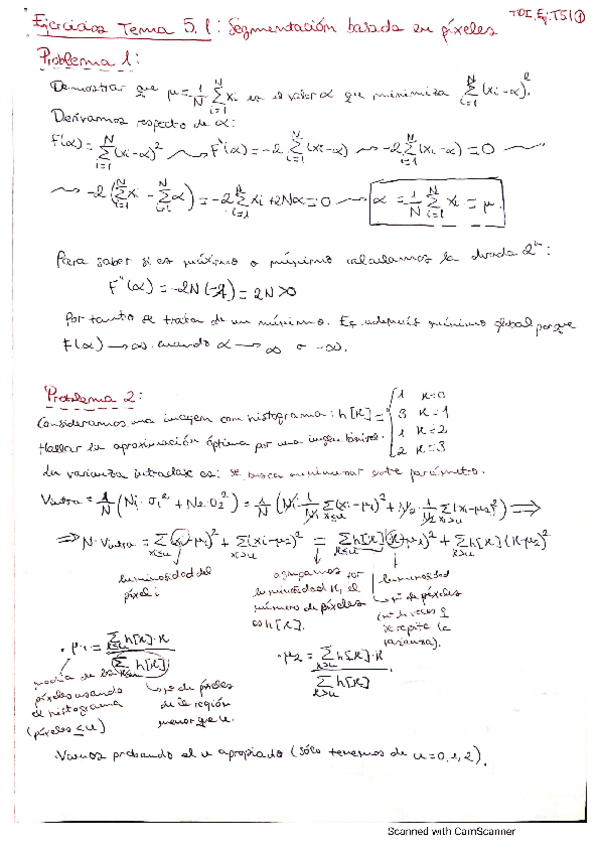 TDI. Ej. T5.1 ①
Ejercicios Tema 5.1: Segmentación basada en píxeles
Problema 1:
Demostrar que μ = 1/N Σ_{i=1}^{N} xi es el valor α que minimiza Σ_{i=1}^{N} (xi-α)²
Derivamos respecto de α:
F(α) = Σ_{i=1}^{N} (xi-α)² ⇝ F'(α) = -2 Σ_{i=1}^{N} (xi-α) ⇝ -2 Σ_{i=1}^{N} (xi-α) = 0 ⇝
⇝ -2 (Σ_{i=1}^{N} xi - Σ_{i=1}^{N} α) = -2 Σ_{i=1}^{N} xi + 2Nα = 0 ⇝ α = 1/N Σ_{i=1}^{N} xi = μ.
Para saber si es máximo o mínimo calculamos la derivada 2ª:
F''(α) = -2N(-1) = 2N > 0
Por tanto se trata de un mínimo. Es además mínimo global porque
F(α) → ∞ cuando α → ∞ o -∞.
Problema 2:
Consideramos una imagen con histograma: h[k] = { 1 k=0
3 k=1
1 k=2
2 k=3
Hallar la aproximación óptima por una imagen binivel.
La varianza intraclase es: se busca minimizar este parámetro.
Vintra = 1/N (N1·σ1² + N2·σ2²) = 1/N (N1·1/N1 Σ_{xi≤u} (xi-μ1)² + N2·1/N2 Σ_{xi>u} (xi-μ2)²) ⟹
⟹ N·Vintra = Σ_{xi≤u} (xi-μ1)² + Σ_{xi>u} (xi-μ2)² = Σ_{k≤u} h[k](k-μ1)² + Σ_{k>u} h[k](k-μ2)²
luminosidad del
píxel i
agrupamos por
luminosidad k, el
número de píxeles
es h[k].
luminosidad
nº de píxeles
(nº de veces q
se repite la
varianza).
· μ1 = Σ_{k≤u} h[k]·k / Σ_{k≤u} h[k]
· μ2 = Σ_{k>u} h[k]·k / Σ_{k>u} h[k]
media de los
píxeles usando
el histograma
(píxeles ≤ u)
nº de píxeles
de la región
menor que u.
· Vamos probando el u apropiado (sólo tenemos de u = 0, 1, 2).
Scanned with CamScanner